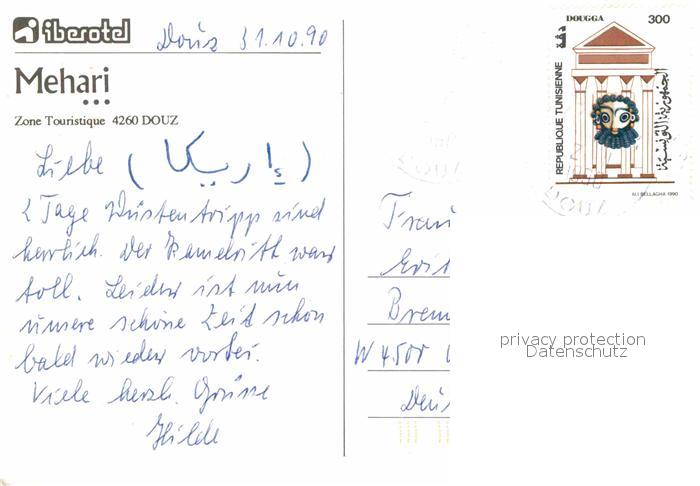 iberotel
Douz 31.10.90
Mehari
Zone Touristique 4260 DOUZ
Liebe (إاريكا)
2 Tage Wüstentripp sind
herrlich. Der Kamelritt war
toll. Leider ist nun
unsere schöne Zeit schon
bald wieder vorbei.
Viele herzl. Grüsse
Hilde
DOUGGA 300
دقة
REPUBLIQUE TUNISIENNE
الجمهورية التونسية
ALI BELLAGHA 1990
Frau
Brem
W 4500
privacy protection
Datenschutz